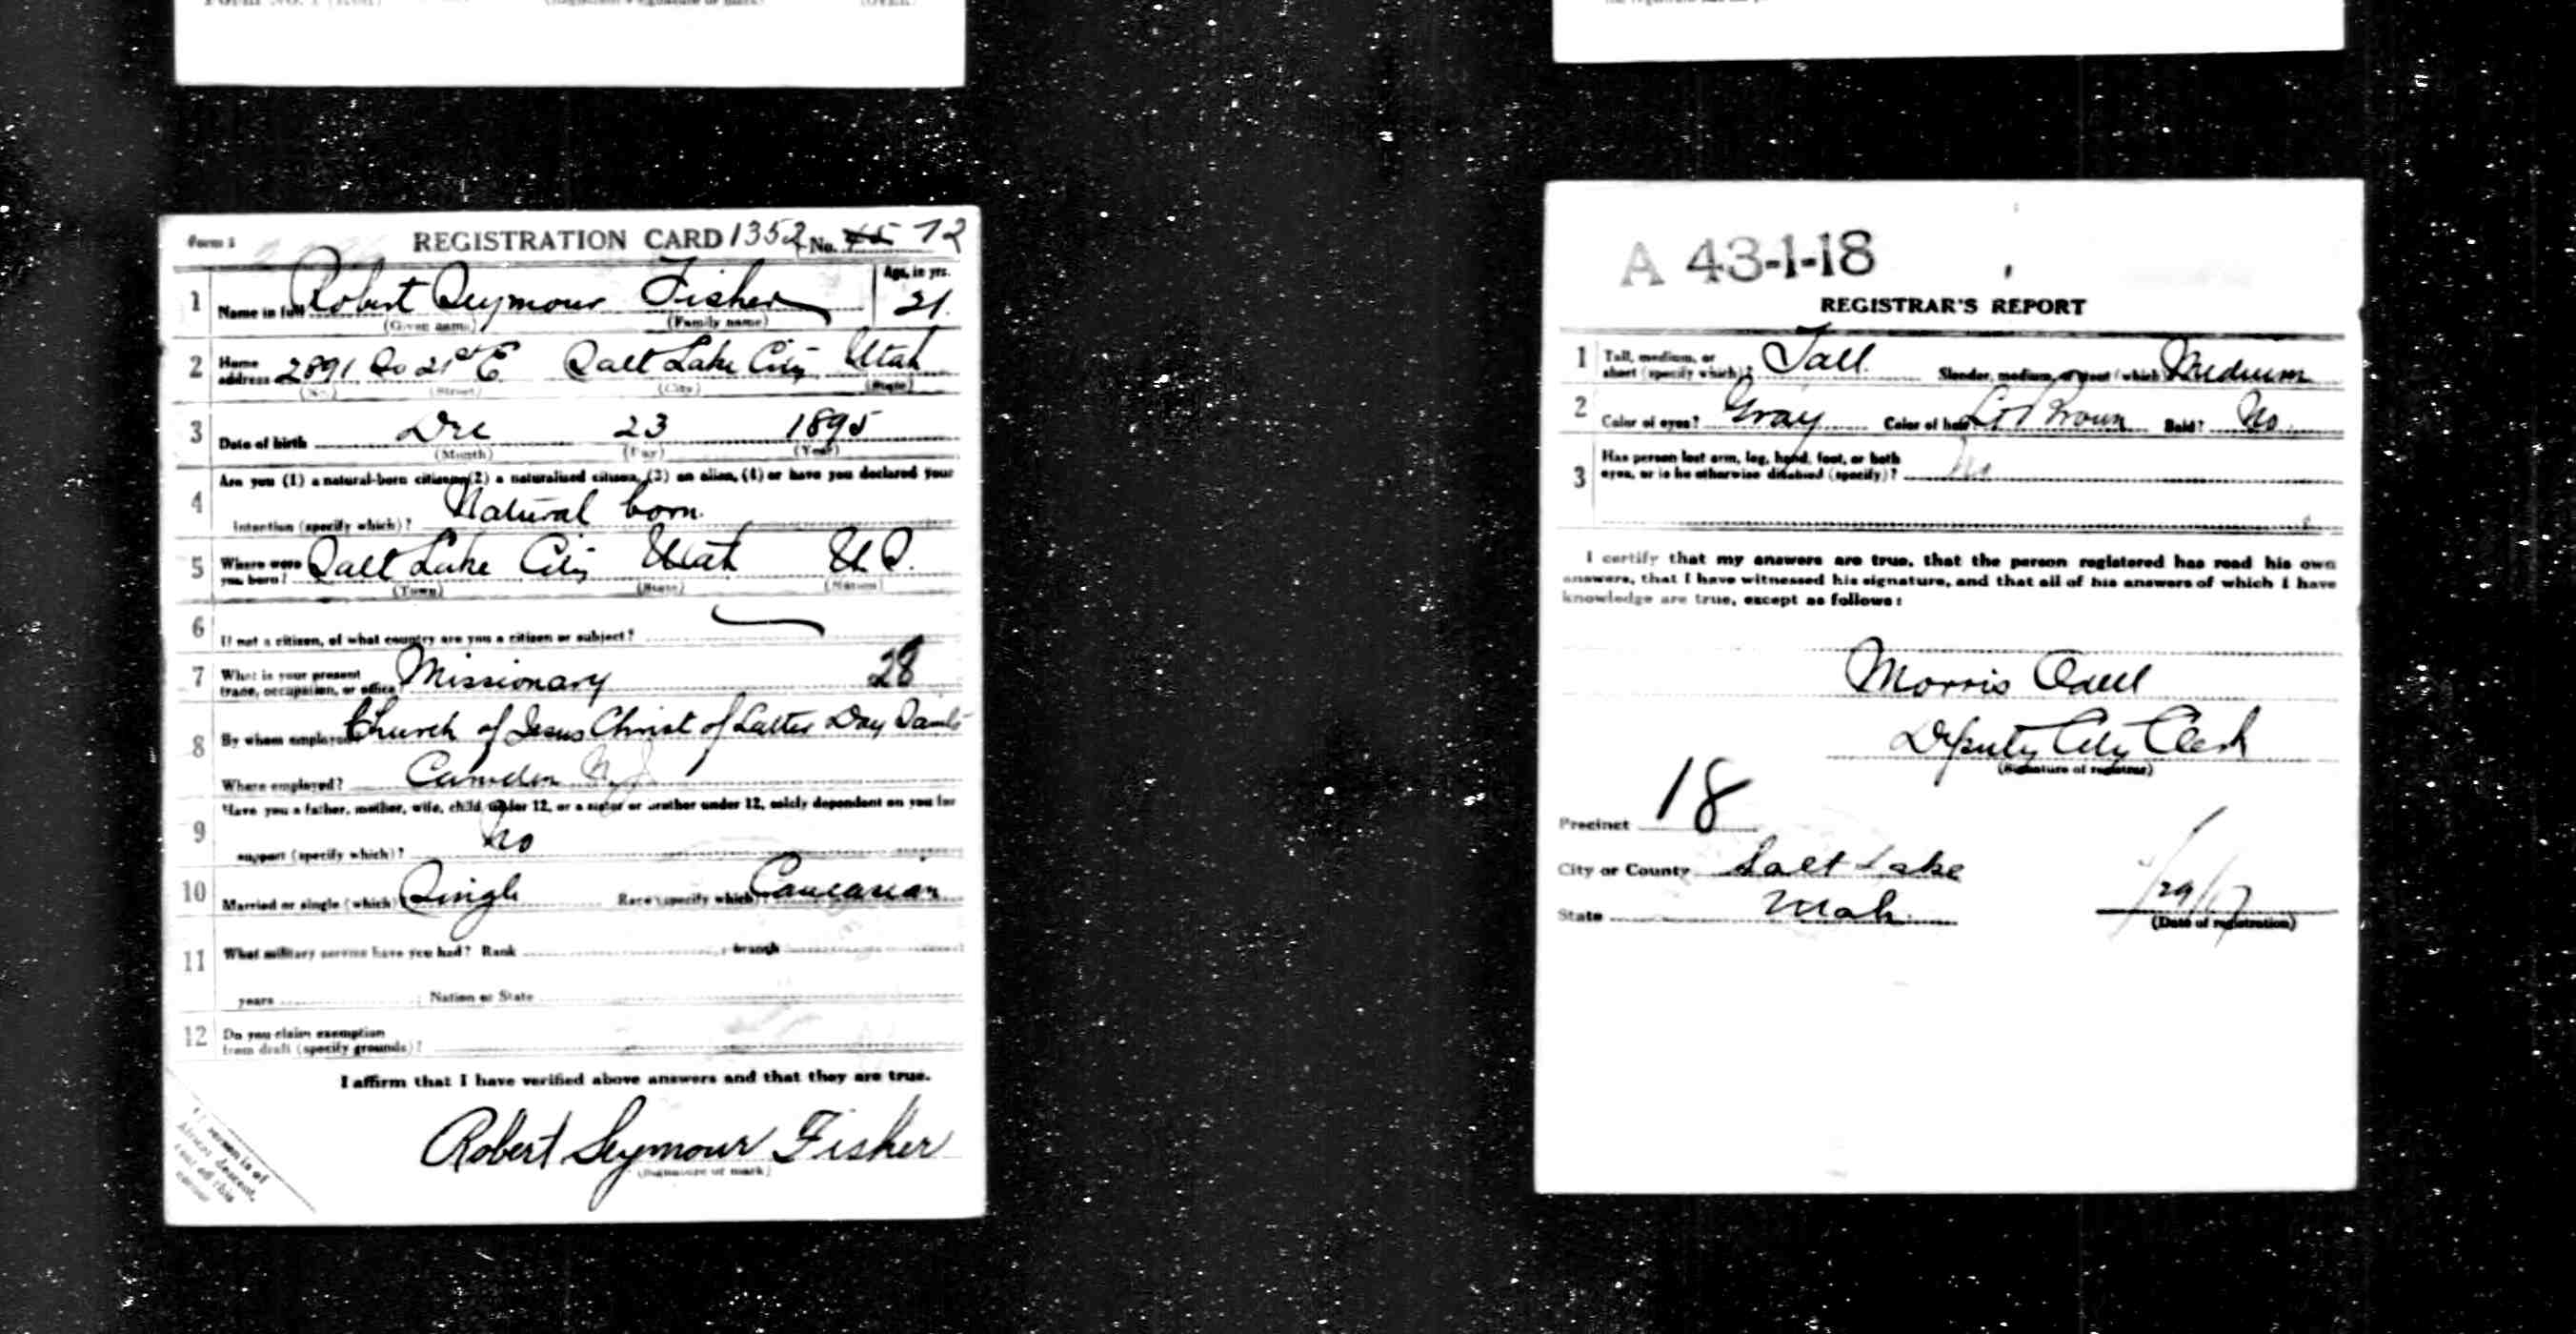 (OVER)
Form 1 REGISTRATION CARD 1352 No. 45 72
1 Name in full Robert Seymour Fisher Age, in yrs. 21
(Given name) (Family name)
2 Home address 2891 So 21st E Salt Lake City Utah
(No.) (Street) (City) (State)
3 Date of birth Dec 23 1895
(Month) (Day) (Year)
4 Are you (1) a natural-born citizen, (2) a naturalized citizen, (3) an alien, (4) or have you declared your
intention (specify which)? Natural born.
5 Where were you born? Salt Lake City Utah U.S.
(Town) (State) (Nation)
6 If not a citizen, of what country are you a citizen or subject?
7 What is your present trade, occupation, or office? Missionary 28
8 By whom employed? Church of Jesus Christ of Latter Day Saints
Where employed? Camden N.J.
9 Have you a father, mother, wife, child under 12, or a sister or brother under 12, solely dependent on you for
support (specify which)? No
10 Married or single (which)? Single Race (specify which)? Caucasian
11 What military service have you had? Rank ; branch
years ; Nation or State
12 Do you claim exemption
from draft (specify grounds)?
I affirm that I have verified above answers and that they are true.
Robert Seymour Fisher
(Signature or mark)
If person is of
African descent,
tear off this
corner
A 43-1-18
REGISTRAR'S REPORT
1 Tall, medium, or short (specify which)? Tall. Slender, medium, or stout (which)? Medium
2 Color of eyes? Gray Color of hair? Lt Brown Bald? No
3 Has person lost arm, leg, hand, foot, or both
eyes, or is he otherwise disabled (specify)? No
I certify that my answers are true, that the person registered has read his own
answers, that I have witnessed his signature, and that all of his answers of which I have
knowledge are true, except as follows:
Morris
Deputy City Clerk
(Signature of registrar)
Precinct 18
City or County Salt Lake
State Utah
29/17
(Date of registration)